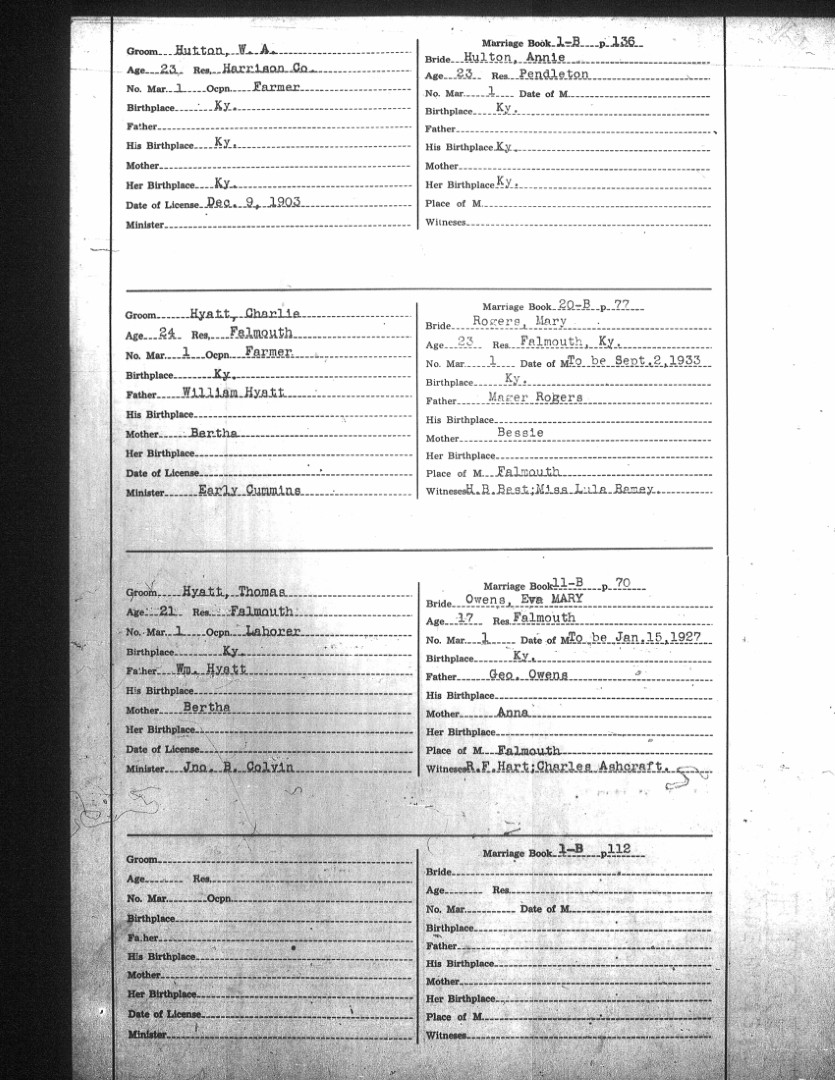 Groom Hutton, W. A.
Age 23 Res. Harrison Co.
No. Mar. 1 Ocpn. Farmer
Birthplace Ky.
Father
His Birthplace Ky.
Mother
Her Birthplace Ky.
Date of License Dec. 9, 1903
Minister
Marriage Book 1-B p. 136
Bride Hulton, Annie
Age 23 Res Pendleton
No. Mar. 1 Date of M.
Birthplace Ky.
Father
His Birthplace Ky.
Mother
Her Birthplace Ky.
Place of M.
Witneses
Groom Hyatt, Charlie
Age 24 Res. Falmouth
No. Mar. 1 Ocpn. Farmer
Birthplace Ky.
Father William Hyatt
His Birthplace
Mother Bertha
Her Birthplace
Date of License
Minister Early Cummins
Marriage Book 20-B p. 77
Bride Rogers, Mary
Age 23 Res Falmouth, Ky.
No. Mar 1 Date of M To be Sept.2,1933
Birthplace Ky.
Father Mager Rogers
His Birthplace
Mother Bessie
Her Birthplace
Place of M. Falmouth
Witneses H.B.Best;Miss Lula Ramey.
Groom Hyatt, Thomas
Age 21 Res. Falmouth
No. Mar. 1 Ocpn. Laborer
Birthplace Ky.
Father Wm. Hyatt
His Birthplace
Mother Bertha
Her Birthplace
Date of License
Minister Jno. B. Colvin
Marriage Book 11-B p. 70
Bride Owens, Eva MARY
Age 17 Res Falmouth
No. Mar. 1 Date of M To be Jan.15,1927
Birthplace Ky.
Father Geo. Owens
His Birthplace
Mother Anna
Her Birthplace
Place of M. Falmouth
Witneses R.F.Hart;Charles Ashcraft.
Groom
Age Res.
No. Mar. Ocpn.
Birthplace
Father
His Birthplace
Mother
Her Birthplace
Date of License
Minister
Marriage Book 1-B p. 112
Bride
Age Res
No. Mar. Date of M.
Birthplace
Father
His Birthplace
Mother
Her Birthplace
Place of M.
Witneses